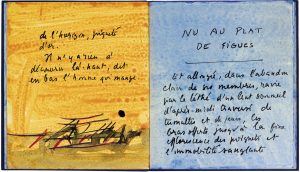 de l'horizon, poignets
d'or.
Il n'y a rien à
découvrir là-haut, dit
en bas l'homme qui mange.
NU AU PLAT
DE FIGUES
Et allongé, dans l'abandon
clair de ses membres, ravie
par le léthé d'un lent sommeil
d'après-midi traversé de
tumultes et de jeux, les
bras offerts jusqu'à la fine
efflorescence des poignets et
l'immobilité sanglante